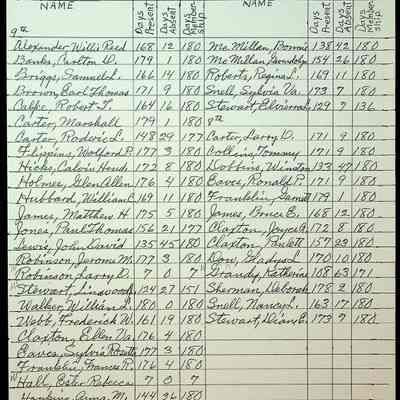 NAME Days Present Days Absent Days Membership NAME Days Present Days Absent Days Membership
9th
Alexander, Willis Reed 168 12 180
Banks, Carlton D. 179 1 180
Briggs, Samuel L. 166 14 180
Brown, Earl Thomas 171 9 180
Calpe, Robert T. 164 16 180
Carter, Marshall 179 1 180
Carter, Rodwic L. 148 29 177
Filippins, Wolford P. 177 3 180
Hicks, Calvin 172 8 180
Holmes, Glen Allen 176 4 180
Hubbard, William C. 169 11 180
James, Matthew H. 175 5 180
Jones, Paul Thomas 156 21 177
Lewis, John David 135 45 180
Robinson, Jerome M. 177 3 180
Robinson, Larry D. 7 0 7
Stewart, Linwood 124 27 151
Walker, William L. 180 0 180
Webb, Frederick W. 161 19 180
Claxton, Ellen Va. 176 4 180
Eaves, Sylvia Rosetta 177 3 180
Franklin, Frances R. 176 4 180
Hall, Ester Rebecca 7 0 7
Hankins, Anna M. 144 36 180
Mc Millan, Bonnie 138 42 180
Mc Millan, Gwendolyn 154 26 180
Roberts, Regina L. 169 11 180
Snell, Sylvia Va. 173 7 180
Stewart, 129 7 136
8th
Carter, Larry D. 171 9 180
Collins, Tommy 171 9 180
Dobbins, Winston 133 47 180
Eaves, Ronald P. 171 9 180
Franklin, 179 1 180
James, Bruce E. 168 12 180
Claxton, Joyce A. 172 8 180
Claxton, Paulett 157 23 180
Dow, Gladys L. 170 10 180
Grandy, Katherine 108 63 171
Sherman, Deborah 178 2 180
Snell, Nancy L. 163 17 180
Stewart, Dian E. 173 7 180